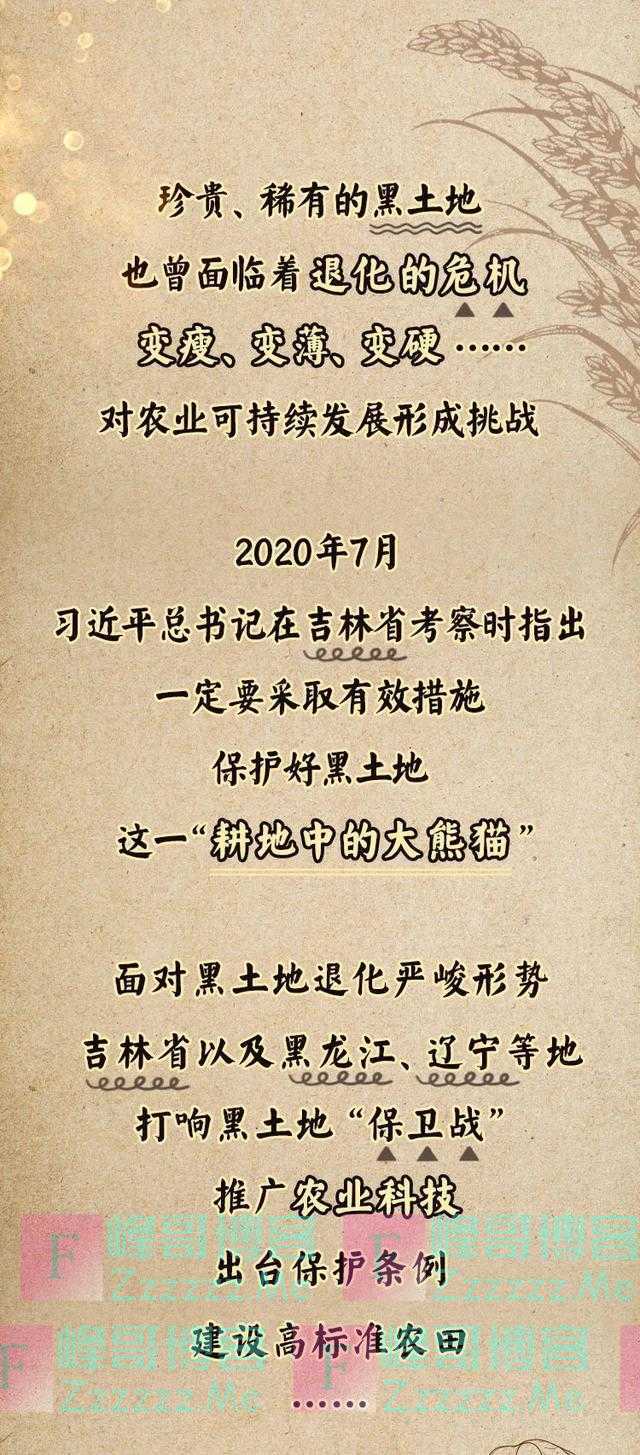 珍贵、稀有的黑土地
也曾面临着退化的危机
变瘦、变薄、变硬……
对农业可持续发展形成挑战
2020年7月
习近平总书记在吉林省考察时指出
一定要采取有效措施
保护好黑土地
这一“耕地中的大熊猫”
面对黑土地退化严峻形势
吉林省以及黑龙江、辽宁等地
打响黑土地“保卫战”
推广农业科技
F 峰哥博客 F 峰哥博客
出台保护条例
Zzzzzz.Me Zzzzzz.Me
建设高标准农田
F 峰哥博客 F 峰哥博客
Zzzzzz.Me Zzzzzz.Me
……